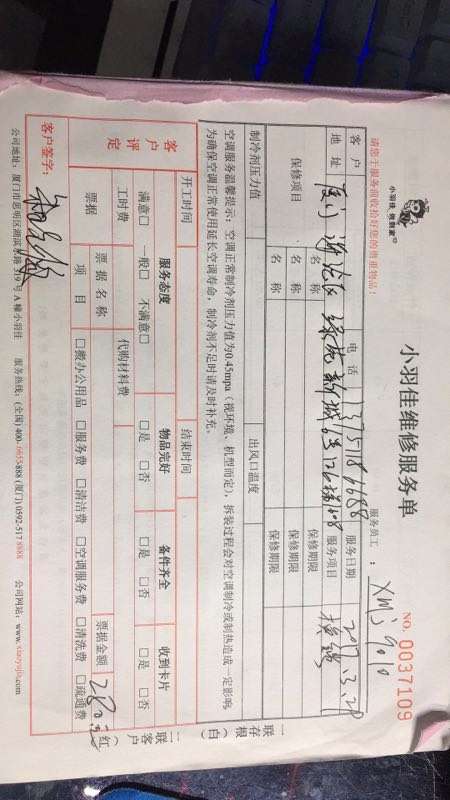 小羽佳·微到家
小羽佳维修服务单
NO. 0037109
请您于服务前收拾好您的贵重物品!
服务员工: XMJ9010
客户 电话 服务日期
地址 服务项目
保修项目 名称 保修期限
名称 保修期限
名称 保修期限
制冷剂压力值 出风口温度
空调服务温馨提示:空调正常制冷剂压力值为0.45mpa(视环境、机型而定),拆装过程会对空调制冷或制热造成一定影响,
为确保空调正常使用延长空调寿命,制冷剂不足时请及时补充。
开工时间 结束时间
客户评定 服务态度 物品完好 备件齐全 收到卡片
满意□ 一般□ 不满意□ □是 □否 □是 □否 □是 □否
工时费 代购材料费
票据 票据名称 票据金额 280
项目 □缴办公用品 □服务费 □清洁费 □空调服务费 □清洗费 □疏通费
客户签字:
公司地址:厦门市思明区湖滨东路319号A幢小羽佳 服务热线:(全国)400-1633-888(厦门)0592-5178888 公司网站:www.xiaoyujia.com
一联存根(白)
二联客户(红)